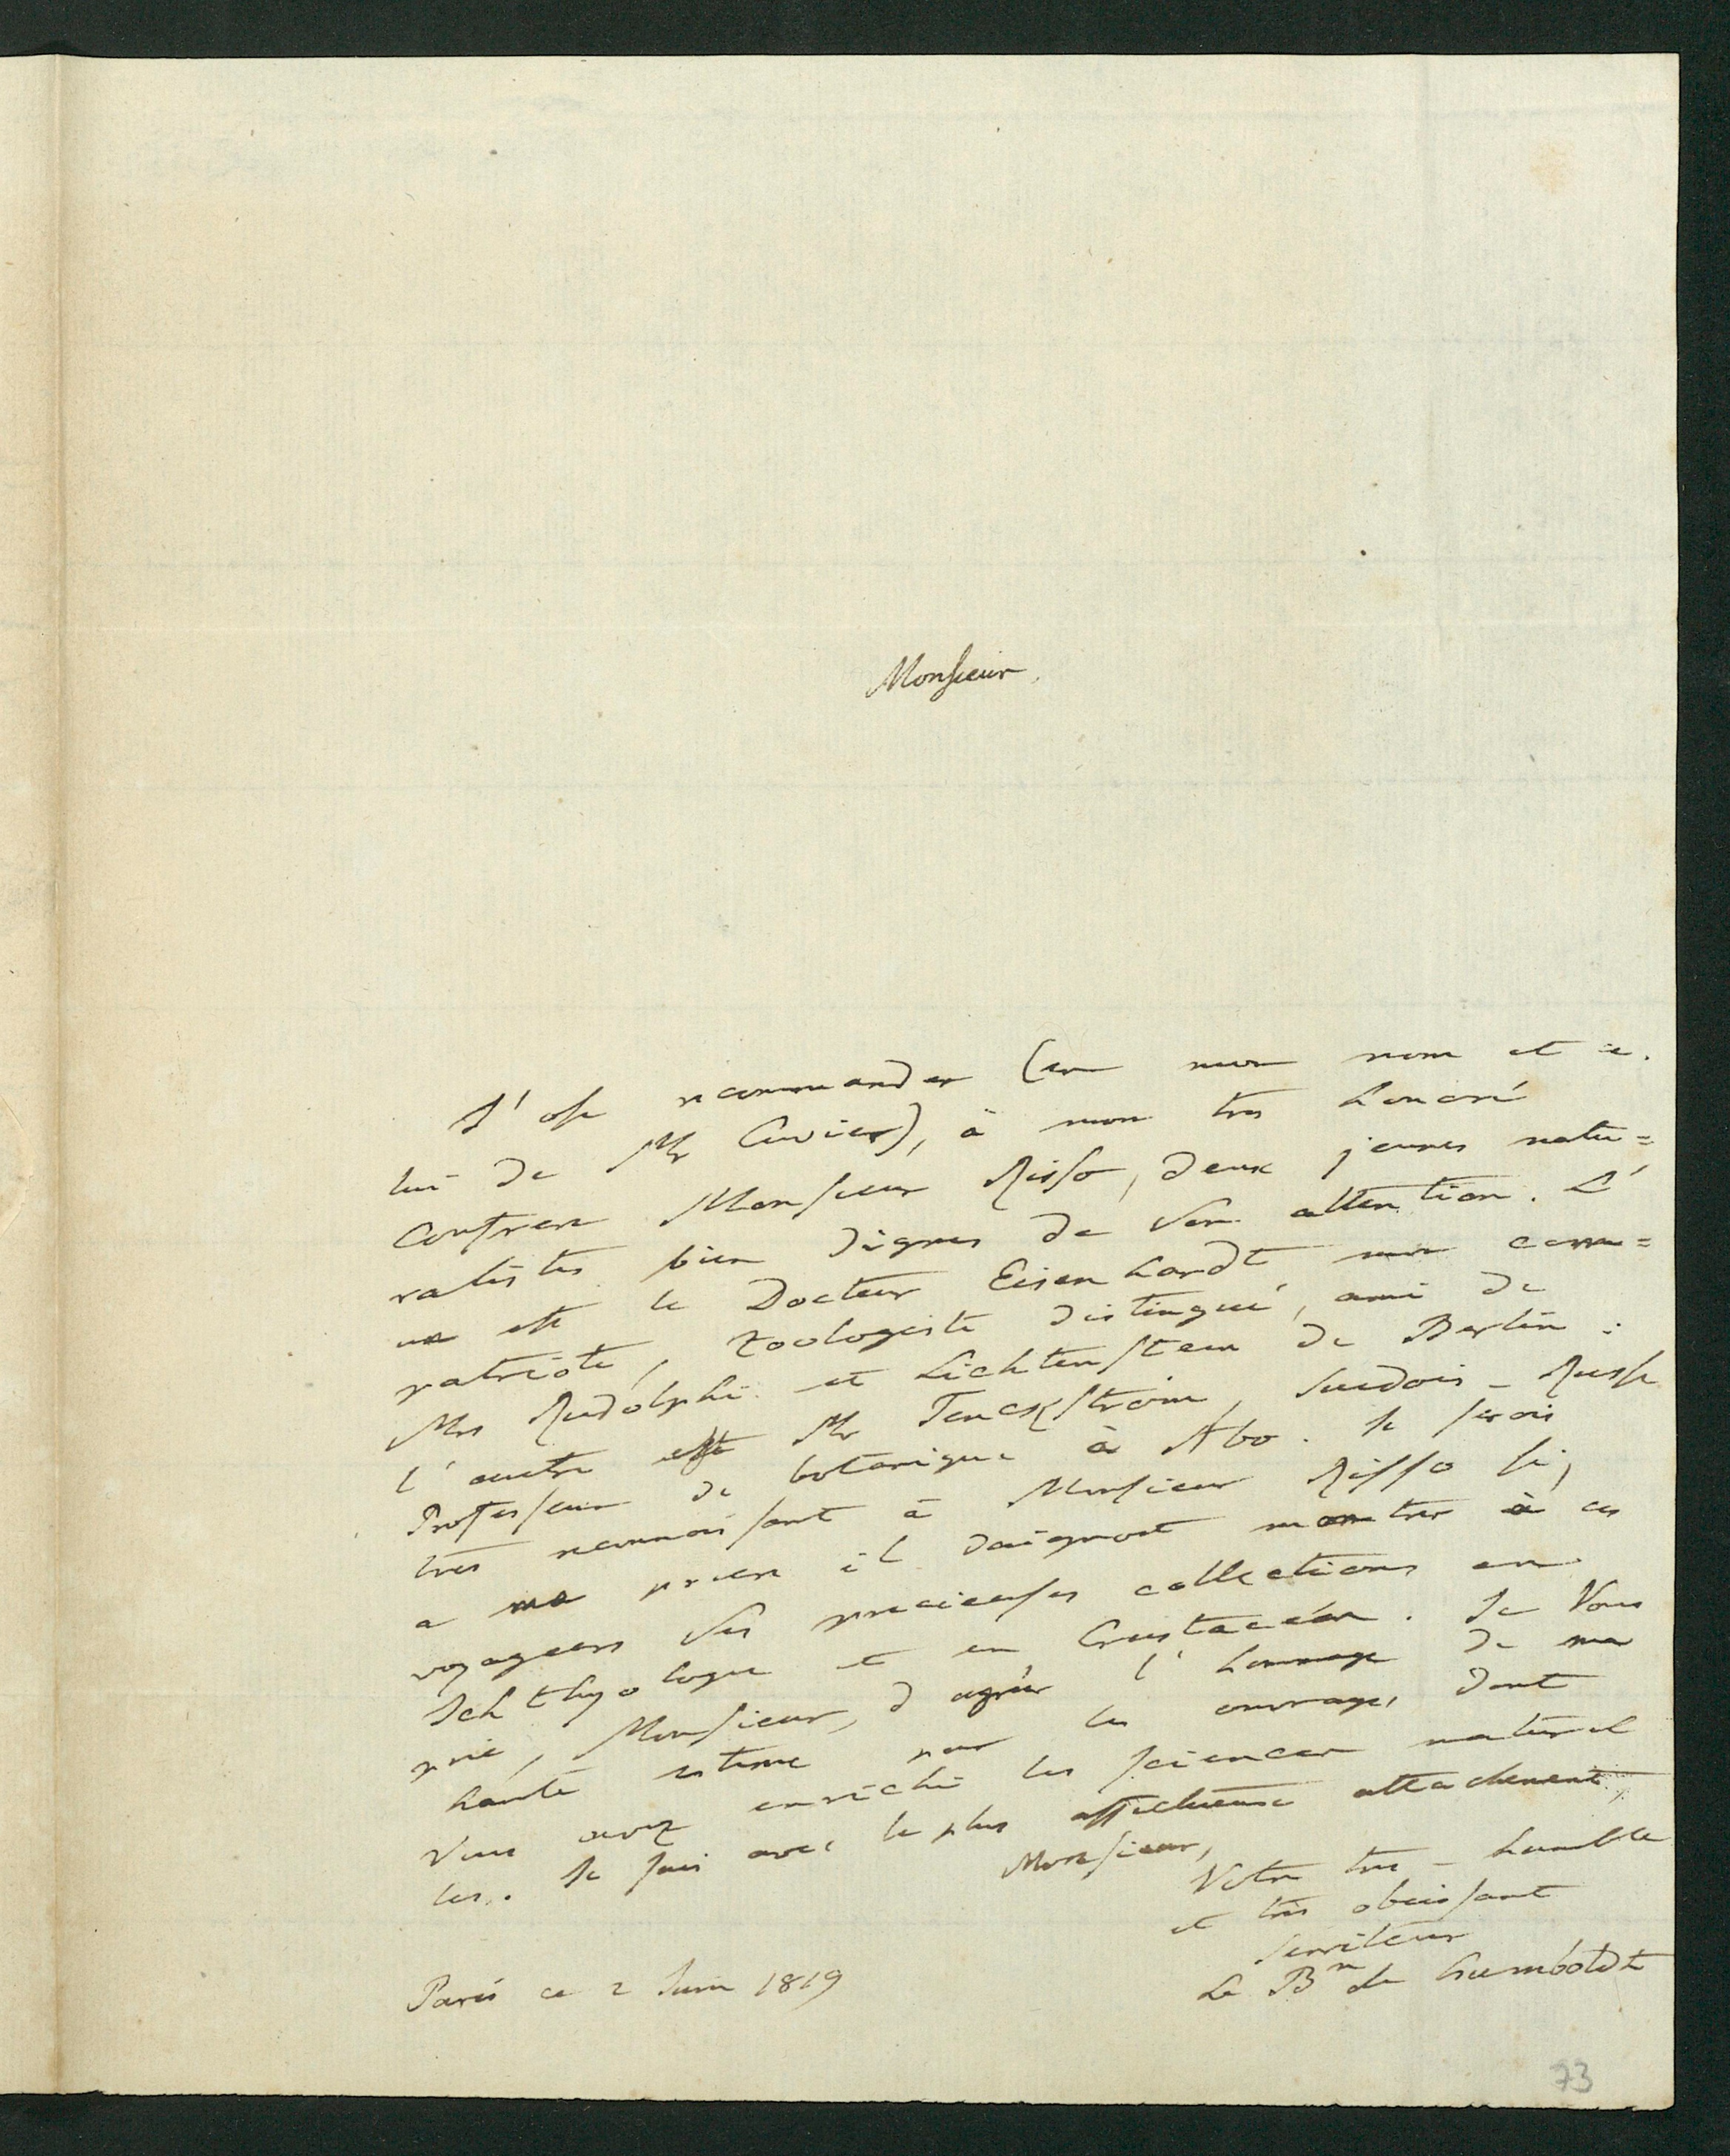 Monsieur,
J'ose recommander (en mon nom et ce-
lui de Mr Cuvier), à mon tres honoré
Confrere Monsieur Risso, deux jeunes natu=
ralistes bien dignes de Son attention. L'
un est le Docteur Eisenhardt mon com=
patriote, zoologiste distingué, ami de
Mrs Rudolphi et Lichtenstein de Berlin:
l'autre est Mr Tenckström, Suedois-Russe
Professeur de botanique à Abo. Je serois
très reconnoissant à Monsieur Risso si,
a ma priere il daignoit montrer à ces
voyageurs Ses precieuses collections en
Ichthyologie et en Crustacéen. Je Vous
prie, Monsieur, d'agréer l'hommage de ma
haute estime pour les ouvrages dont
Vous avez enrichi les sciences naturel
les. Je suis avec le plus affectueuse attachement,
Monsieur,
Votre tres-humble
et très obeissant
serviteur
Le Bn de Humboldt
Paris ce 2 Juin 1819
73